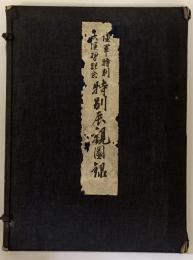 陸軍特別
大演習記念
特別展観図録